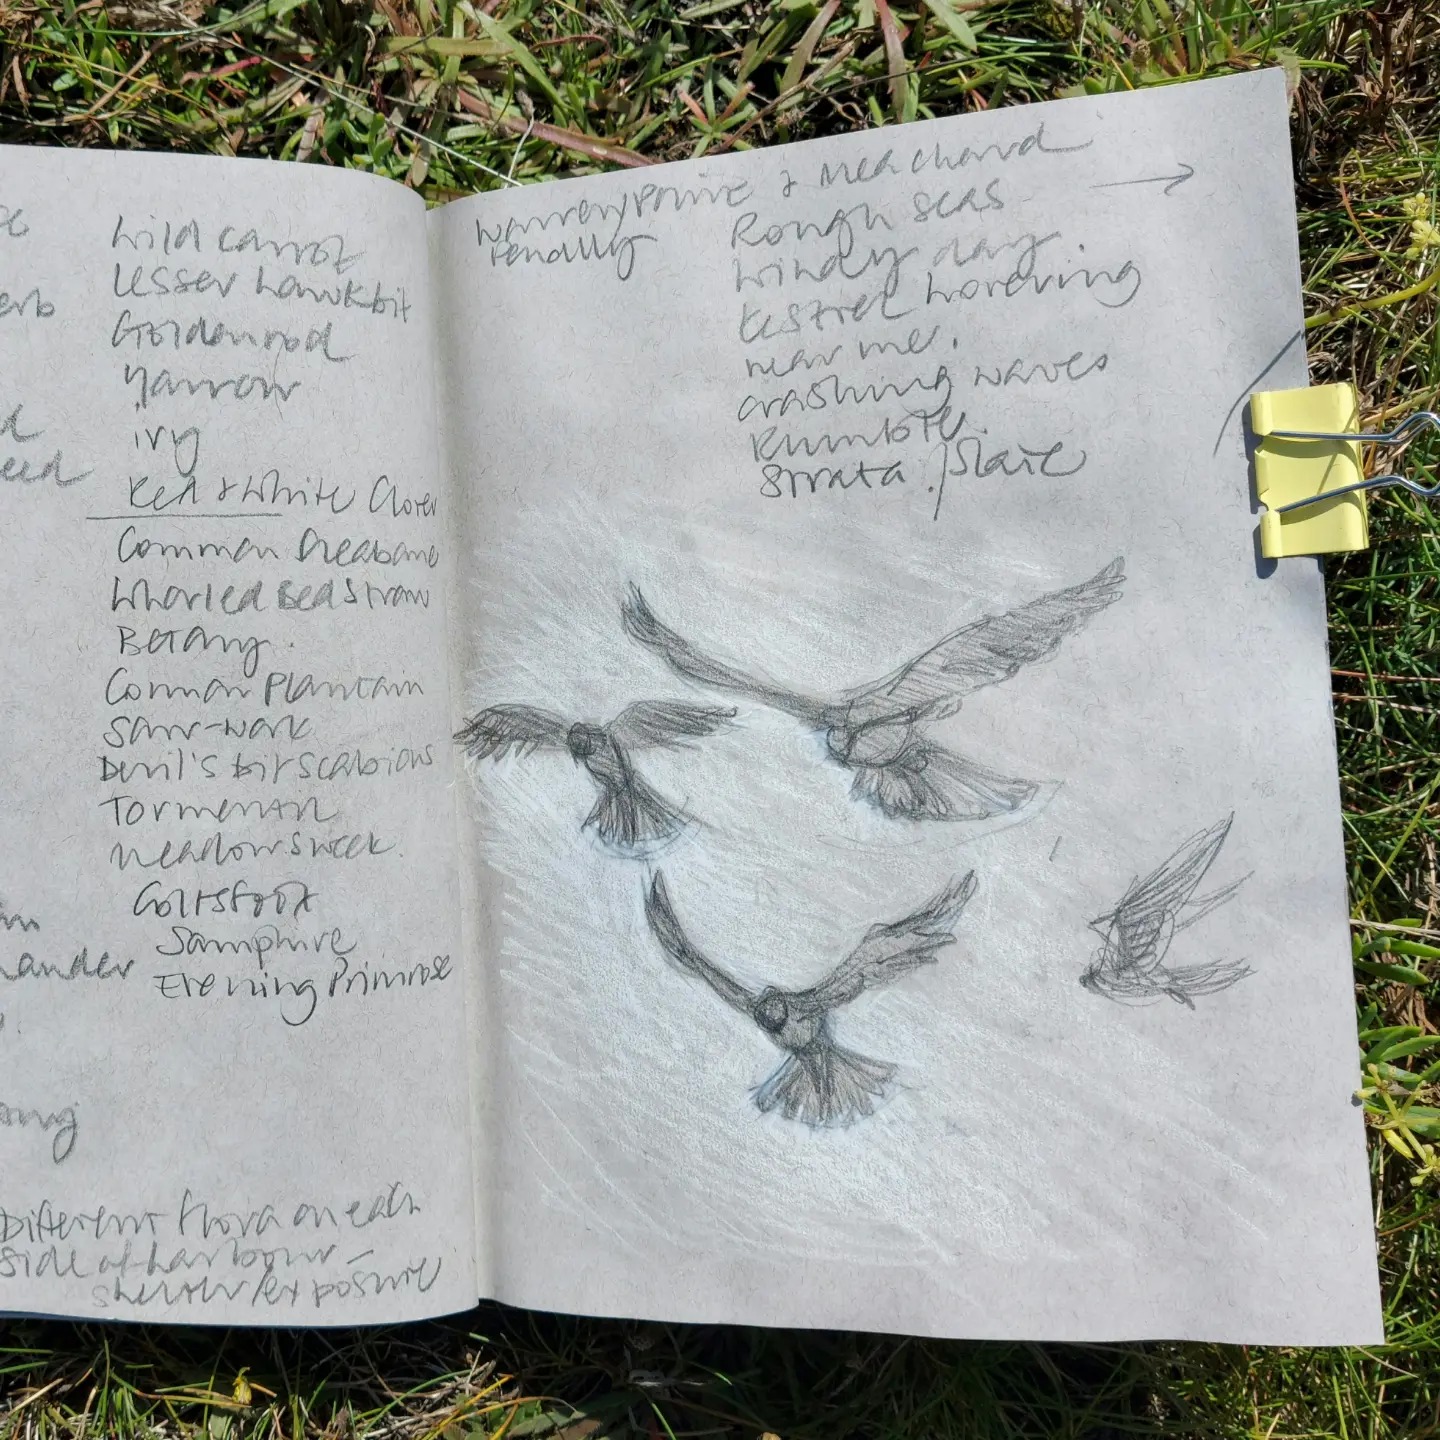 erb
eed
ander
Wild carrot
Lesser hawkbit
Goldenrod
Yarrow
ivy
Red & White Clover
Common fleabane
Whorled Bedstraw
Betany.
Common Plantain
Saw-wort
Devil's bit Scabious
Tormentil
Meadowsweet.
Coltsfoot
Samphire
Evening Primrose
Different flora on each
side of harbour —
shelter/exposure
Warren Point &
Rough seas
Windy day.
Kestrel hovering
near me.
crashing waves
Rumble.
Strata./Slate